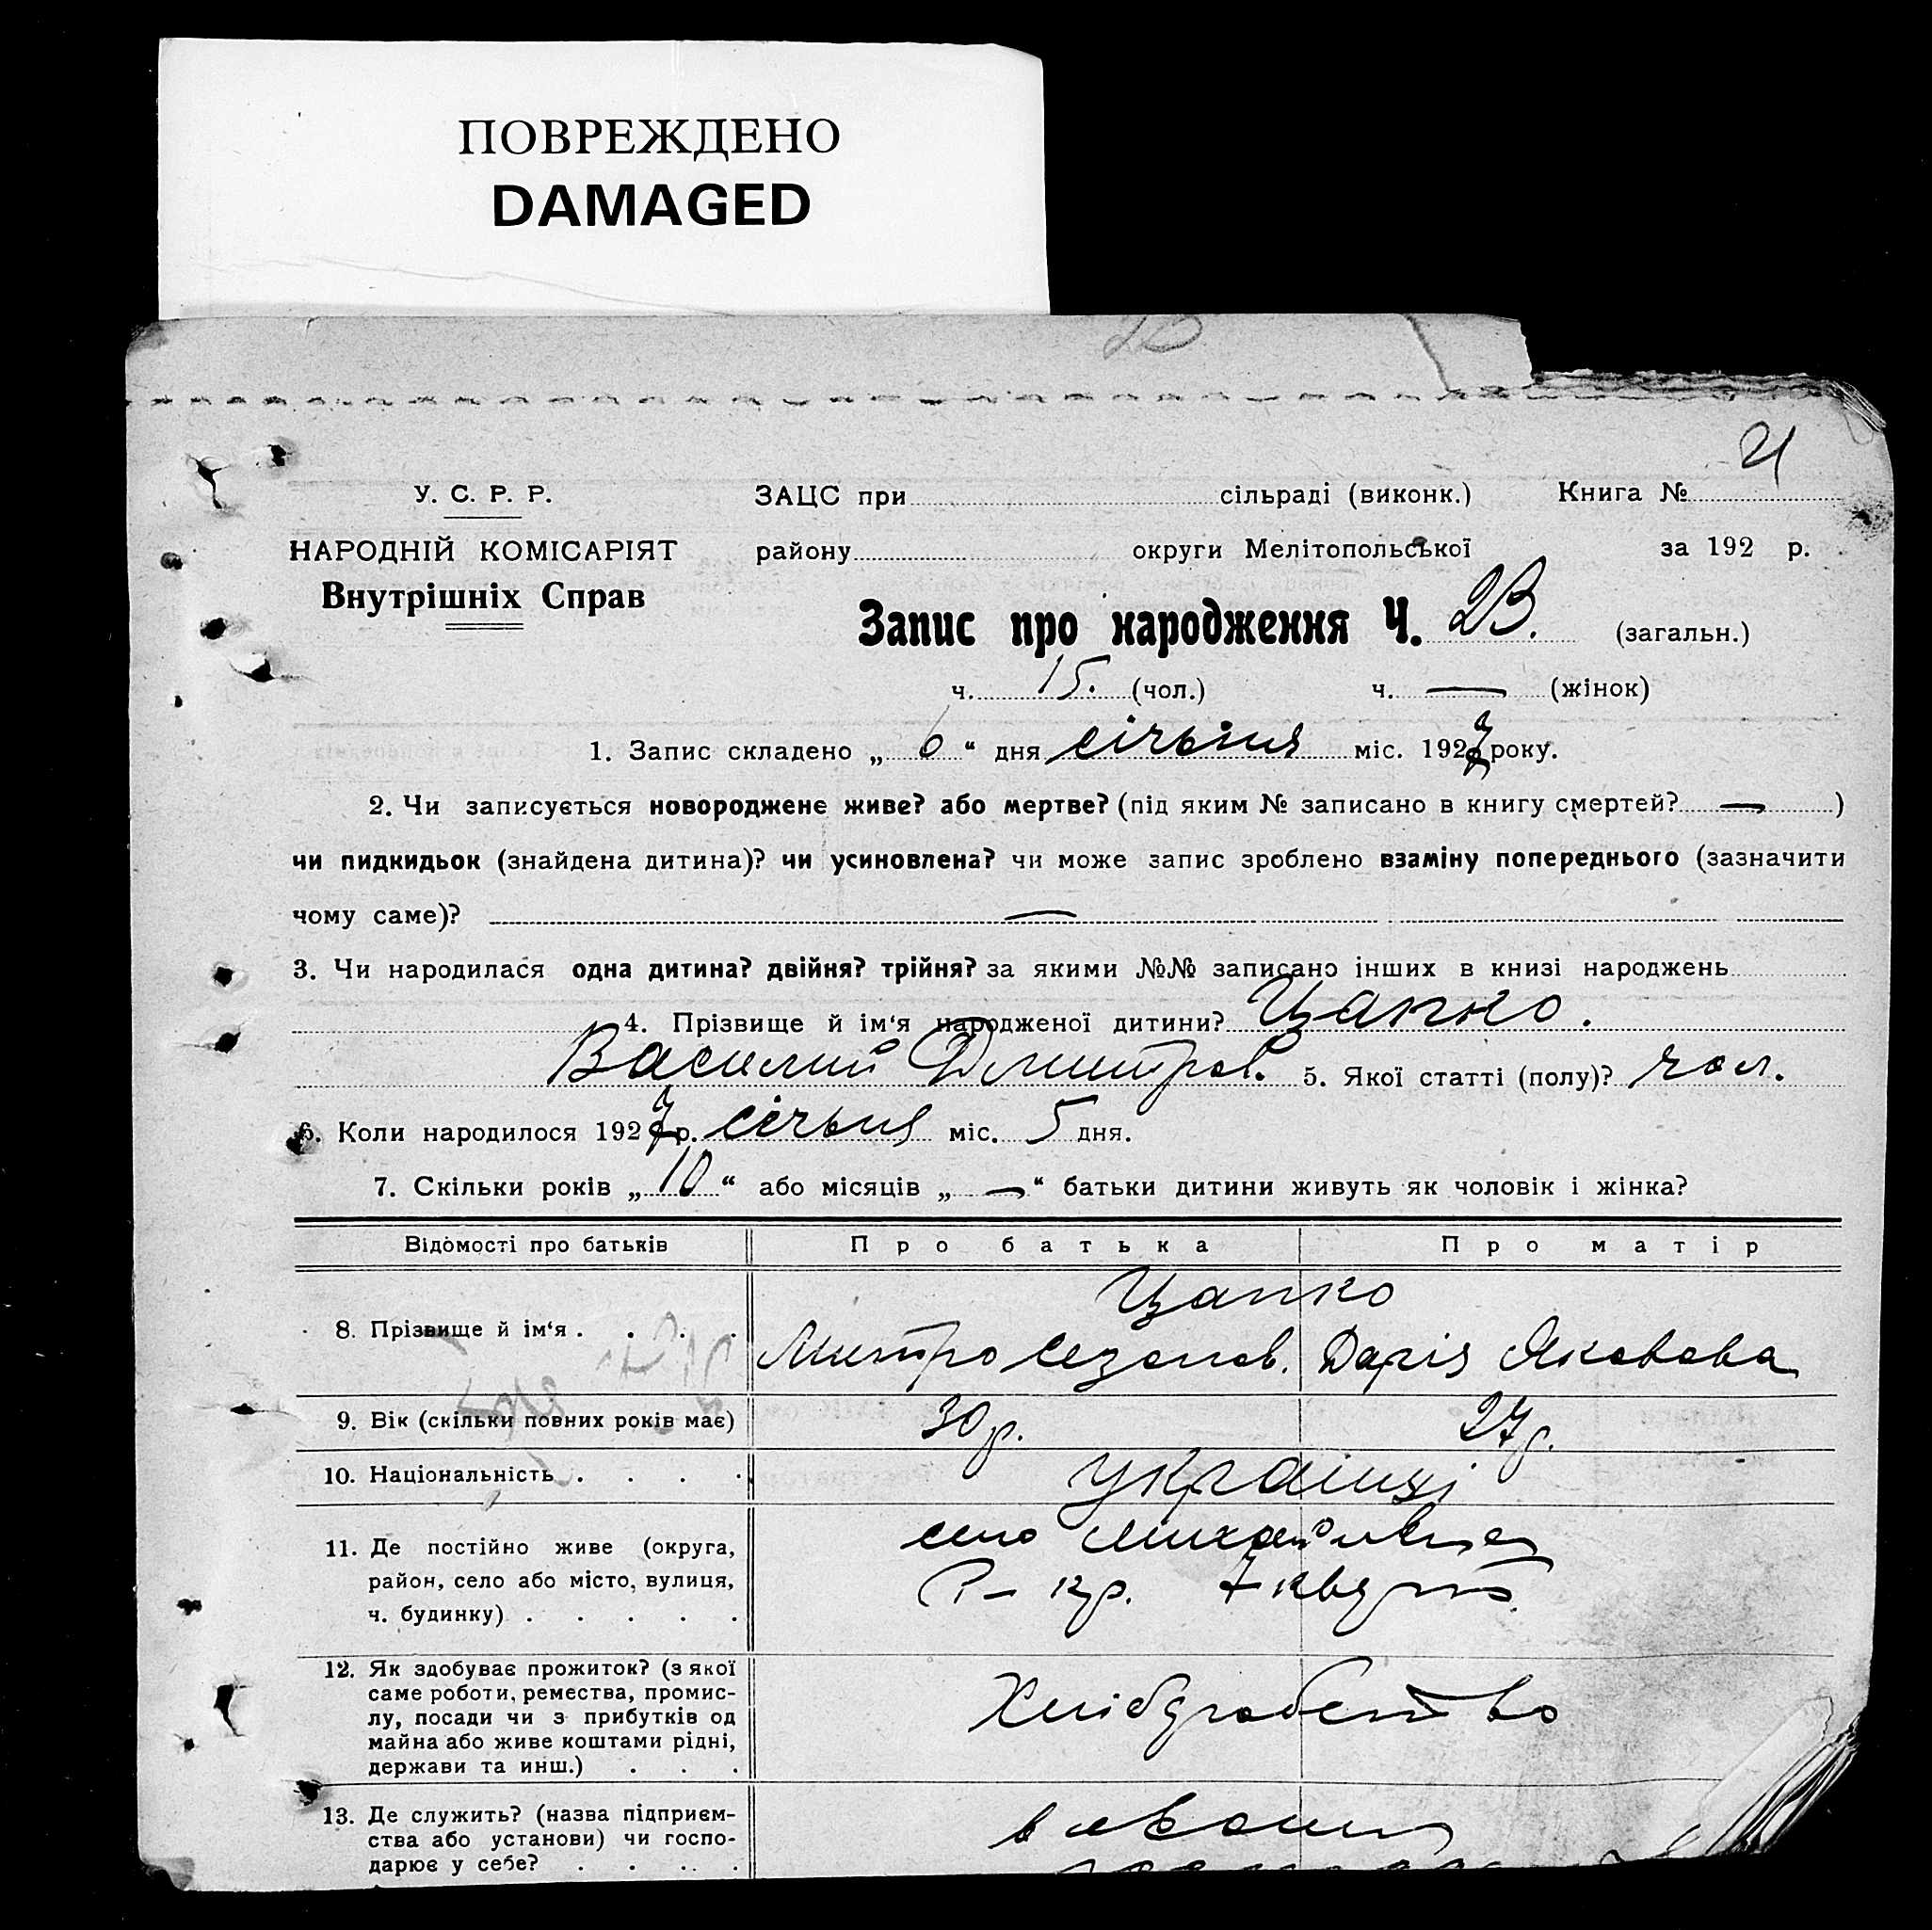 ПОВРЕЖДЕНО
DAMAGED
У. С. Р. Р.
НАРОДНІЙ КОМІСАРІЯТ
Внутрішніх Справ
ЗАЦС при сільраді (виконк.) Книга №
району округи Мелітопольської за 192 р.
Запис про народження Ч. 23. (загальн.)
ч. 15. (чол.) ч. — (жінок)
1. Запис складено „ 6 “ дня січьня міс. 1927 року.
2. Чи записується новороджене живе? або мертве? (під яким № записано в книгу смертей? — )
чи пидкидьок (знайдена дитина)? чи усиновлена? чи може запис зроблено взаміну попереднього (зазначити
чому саме)? —
3. Чи народилася одна дитина? двійня? трійня? за якими №№ записано інших в книзі народжень
4. Прізвище й ім‘я народженої дитини? Цапко.
Василий Дмитров. 5. Якої статті (полу)? чол.
6. Коли народилося 1927 р. січьня міс. 5 дня.
7. Скільки років „ 10 “ або місяців „ — “ батьки дитини живуть як чоловік і жінка?
Відомості про батьків Про батька Про матір
Цапко
8. Прізвище й ім‘я . . . . Митро Дарія Яковова
9. Вік (скільки повних років має) 30 р. 27 р.
10. Національність . . . . українці
11. Де постійно живе (округа,
район, село або місто, вулиця,
ч. будинку) . . . . .
село Михайлівка
12. Як здобуває прожиток? (з якої
саме роботи, ремества, промис-
лу, посади чи з прибутків од
майна або живе коштами рідні,
держави та инш.) . . .
Хлібдробство
13. Де служить? (назва підприєм-
ства або установи) чи госпо-
дарює у себе? . . . .
в